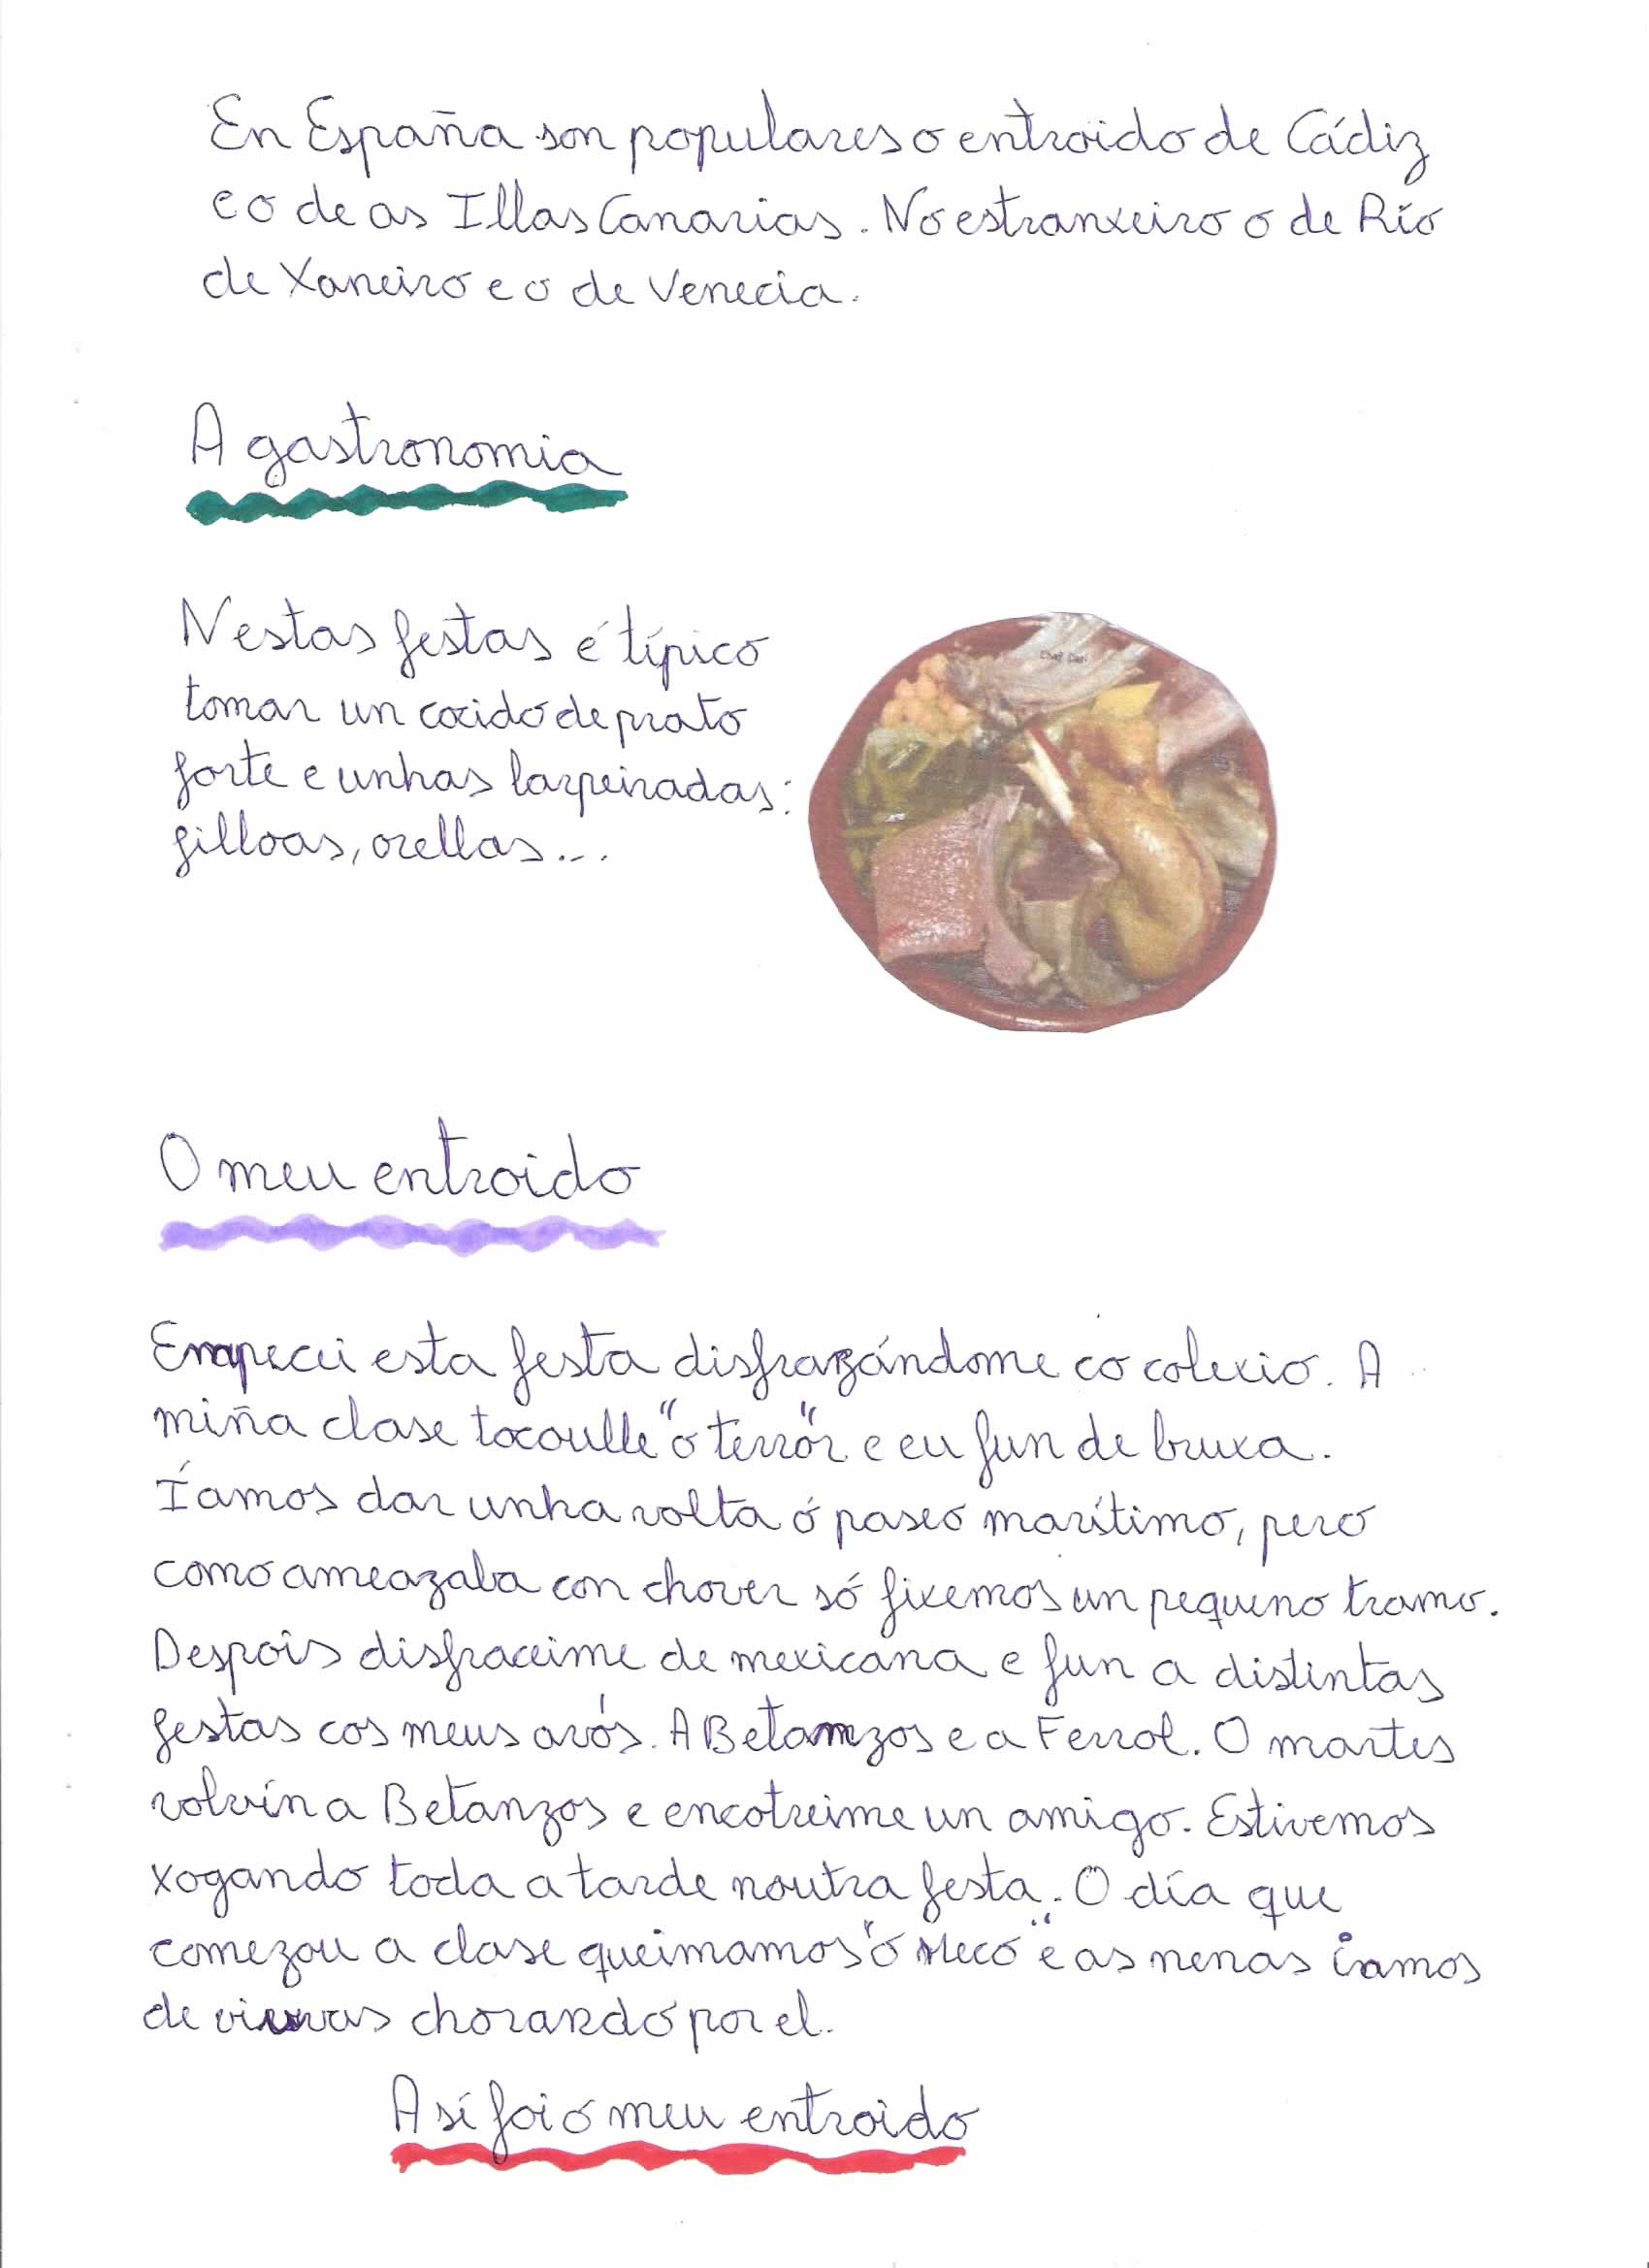 En España son populares o entroido de Cádiz
e o de as Illas Canarias. No estranxeiro o de Río
de Xaneiro e o de Venecia.
A gastronomia
Nestas festas é típico
tomar un cocido de prato
forte e unhas larpeiradas:
filloas, orellas...
Chef Dati
O meu entroido
Empecei esta festa disfrazándome co colexio. A
miña clase tocoulle "o terror" e eu fun de bruxa.
Íamos dar unha volta ó paseo marítimo, pero
como ameazaba con chover só fixemos un pequeno tramo.
Despois disfraceime de mexicana e fun a distintas
festas cos meus avós. A Betanzos e a Ferrol. O martes
volvín a Betanzos e encotreime un amigo. Estivemos
xogando toda a tarde noutra festa. O día que
comezou a clase queimamos "o Meco" e as nenas iamos
de viuvas chorando por el.
Así foi o meu entroido